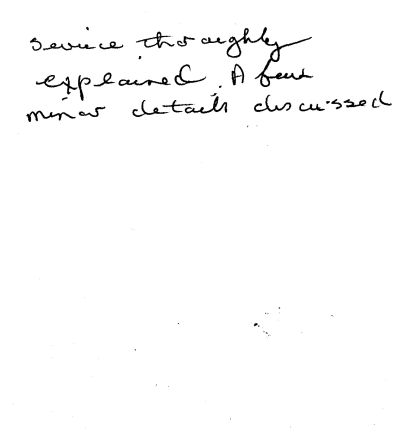 Service thoroughly
explained. A few
minor details discussed